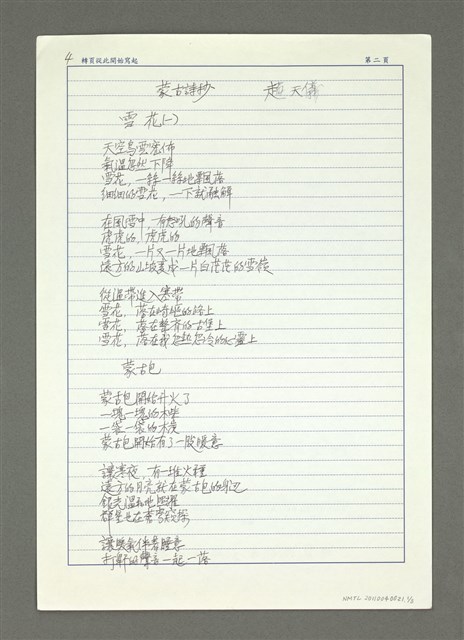 4
轉頁從此開始寫起
第二頁
蒙古詩抄 趙天儀
雪花(一)
天空烏雲密佈
氣溫忽然下降
雪花，一絲一絲地飄落
細細的雪花，一下就融解
在風雪中 有怒吼的聲音
虎虎的，虎虎的
雪花，一片又一片地飄落
遠方的山坡變成一片白茫茫的雪嶺
從溫帶進入寒帶
雪花，落在崎嶇的路上
雪花，落在整齊的古堡上
雪花，落在我忽熱忽冷的心靈上
蒙古包
蒙古包開始升火了
一塊一塊的木柴
一袋一袋的木炭
蒙古包開始有了一股暖意
讓寒夜，有一堆火種
遠方的月亮就在蒙古包的身邊
銀光溫和地照耀
群星也在書寫
讓暖氣伴著睡意
打鼾的聲音一起一落
NMTL 2011004082